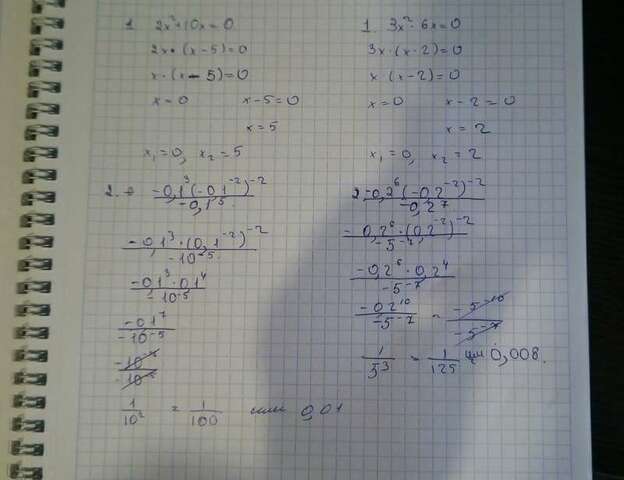 1 2x²-10x=0
2x·(x-5)=0
x·(x-5)=0
x=0 x-5=0
x=5
x₁=0, x₂=5
2. -0,1³(-0,1⁻²)⁻² / -0,1⁵
-0,1³·(0,1⁻²)⁻² / -10⁻⁵
-0,1³·0,1⁴ / -10⁻⁵
-0,1⁷ / -10⁻⁵
1/10² = 1/100 или 0,01
1. 3x²-6x=0
3x·(x-2)=0
x·(x-2)=0
x=0 x-2=0
x=2
x₁=0, x₂=2
2. -0,2⁶(-0,2⁻²)⁻² / -0,2⁷
-0,2⁶·(0,2⁻²)⁻² / -5⁻⁷
-0,2⁶·0,2⁴ / -5⁻⁷
-0,2¹⁰ / -5⁻⁷ = -5⁻¹⁰ / -5⁻⁷
1/5³ = 1/125 или 0,008.